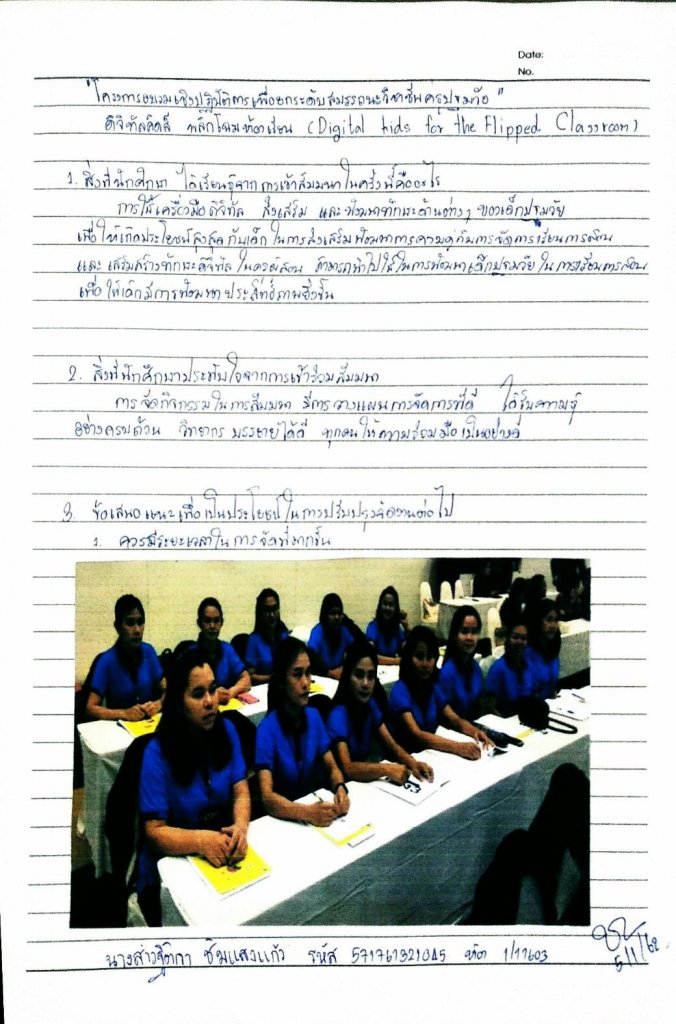 Date:
No.
"โครงการอบรมเชิงปฏิบัติการเพื่อยกระดับสมรรถนะวิชาชีพครูปฐมวัย"
ดิจิทัลคิดส์ พลิกโฉมห้องเรียน (Digital kids for the Flipped Classroom)
1. สิ่งที่นักศึกษา ได้เรียนรู้จากการเข้าสัมมนาในครั้งนี้คืออะไร
การใช้เครื่องมือดิจิทัล ส่งเสริม และพัฒนาทักษะด้านต่างๆ ของเด็กปฐมวัย
เพื่อให้เกิดประโยชน์สูงสุดกับเด็ก ในการส่งเสริมพัฒนาการควบคู่กับการจัดการเรียนการสอน
และ เสริมสร้างทักษะดิจิทัล ในครูผู้สอน สามารถนำไปใช้ในการพัฒนาเด็กปฐมวัย ในการเรียนการสอน
เพื่อให้เด็กมีการพัฒนา ประสิทธิภาพยิ่งขึ้น
2. สิ่งที่นักศึกษาประทับใจจากการเข้าร่วมสัมมนา
การจัดกิจกรรมในการสัมมนา มีการวางแผนการจัดการที่ดี ได้รับความรู้
อย่างครบถ้วน วิทยากร บรรยายได้ดี ทุกคนให้ความร่วมมือเป็นอย่างดี
3. ข้อเสนอแนะเพื่อเป็นประโยชน์ในการปรับปรุงจัดงานต่อไป
1. ควรมีระยะเวลาในการจัดที่มากขึ้น
นางสาวฐิติกา ชิมแสงแก้ว รหัส 571761921045 หมู่ 1/11603
5/1/62